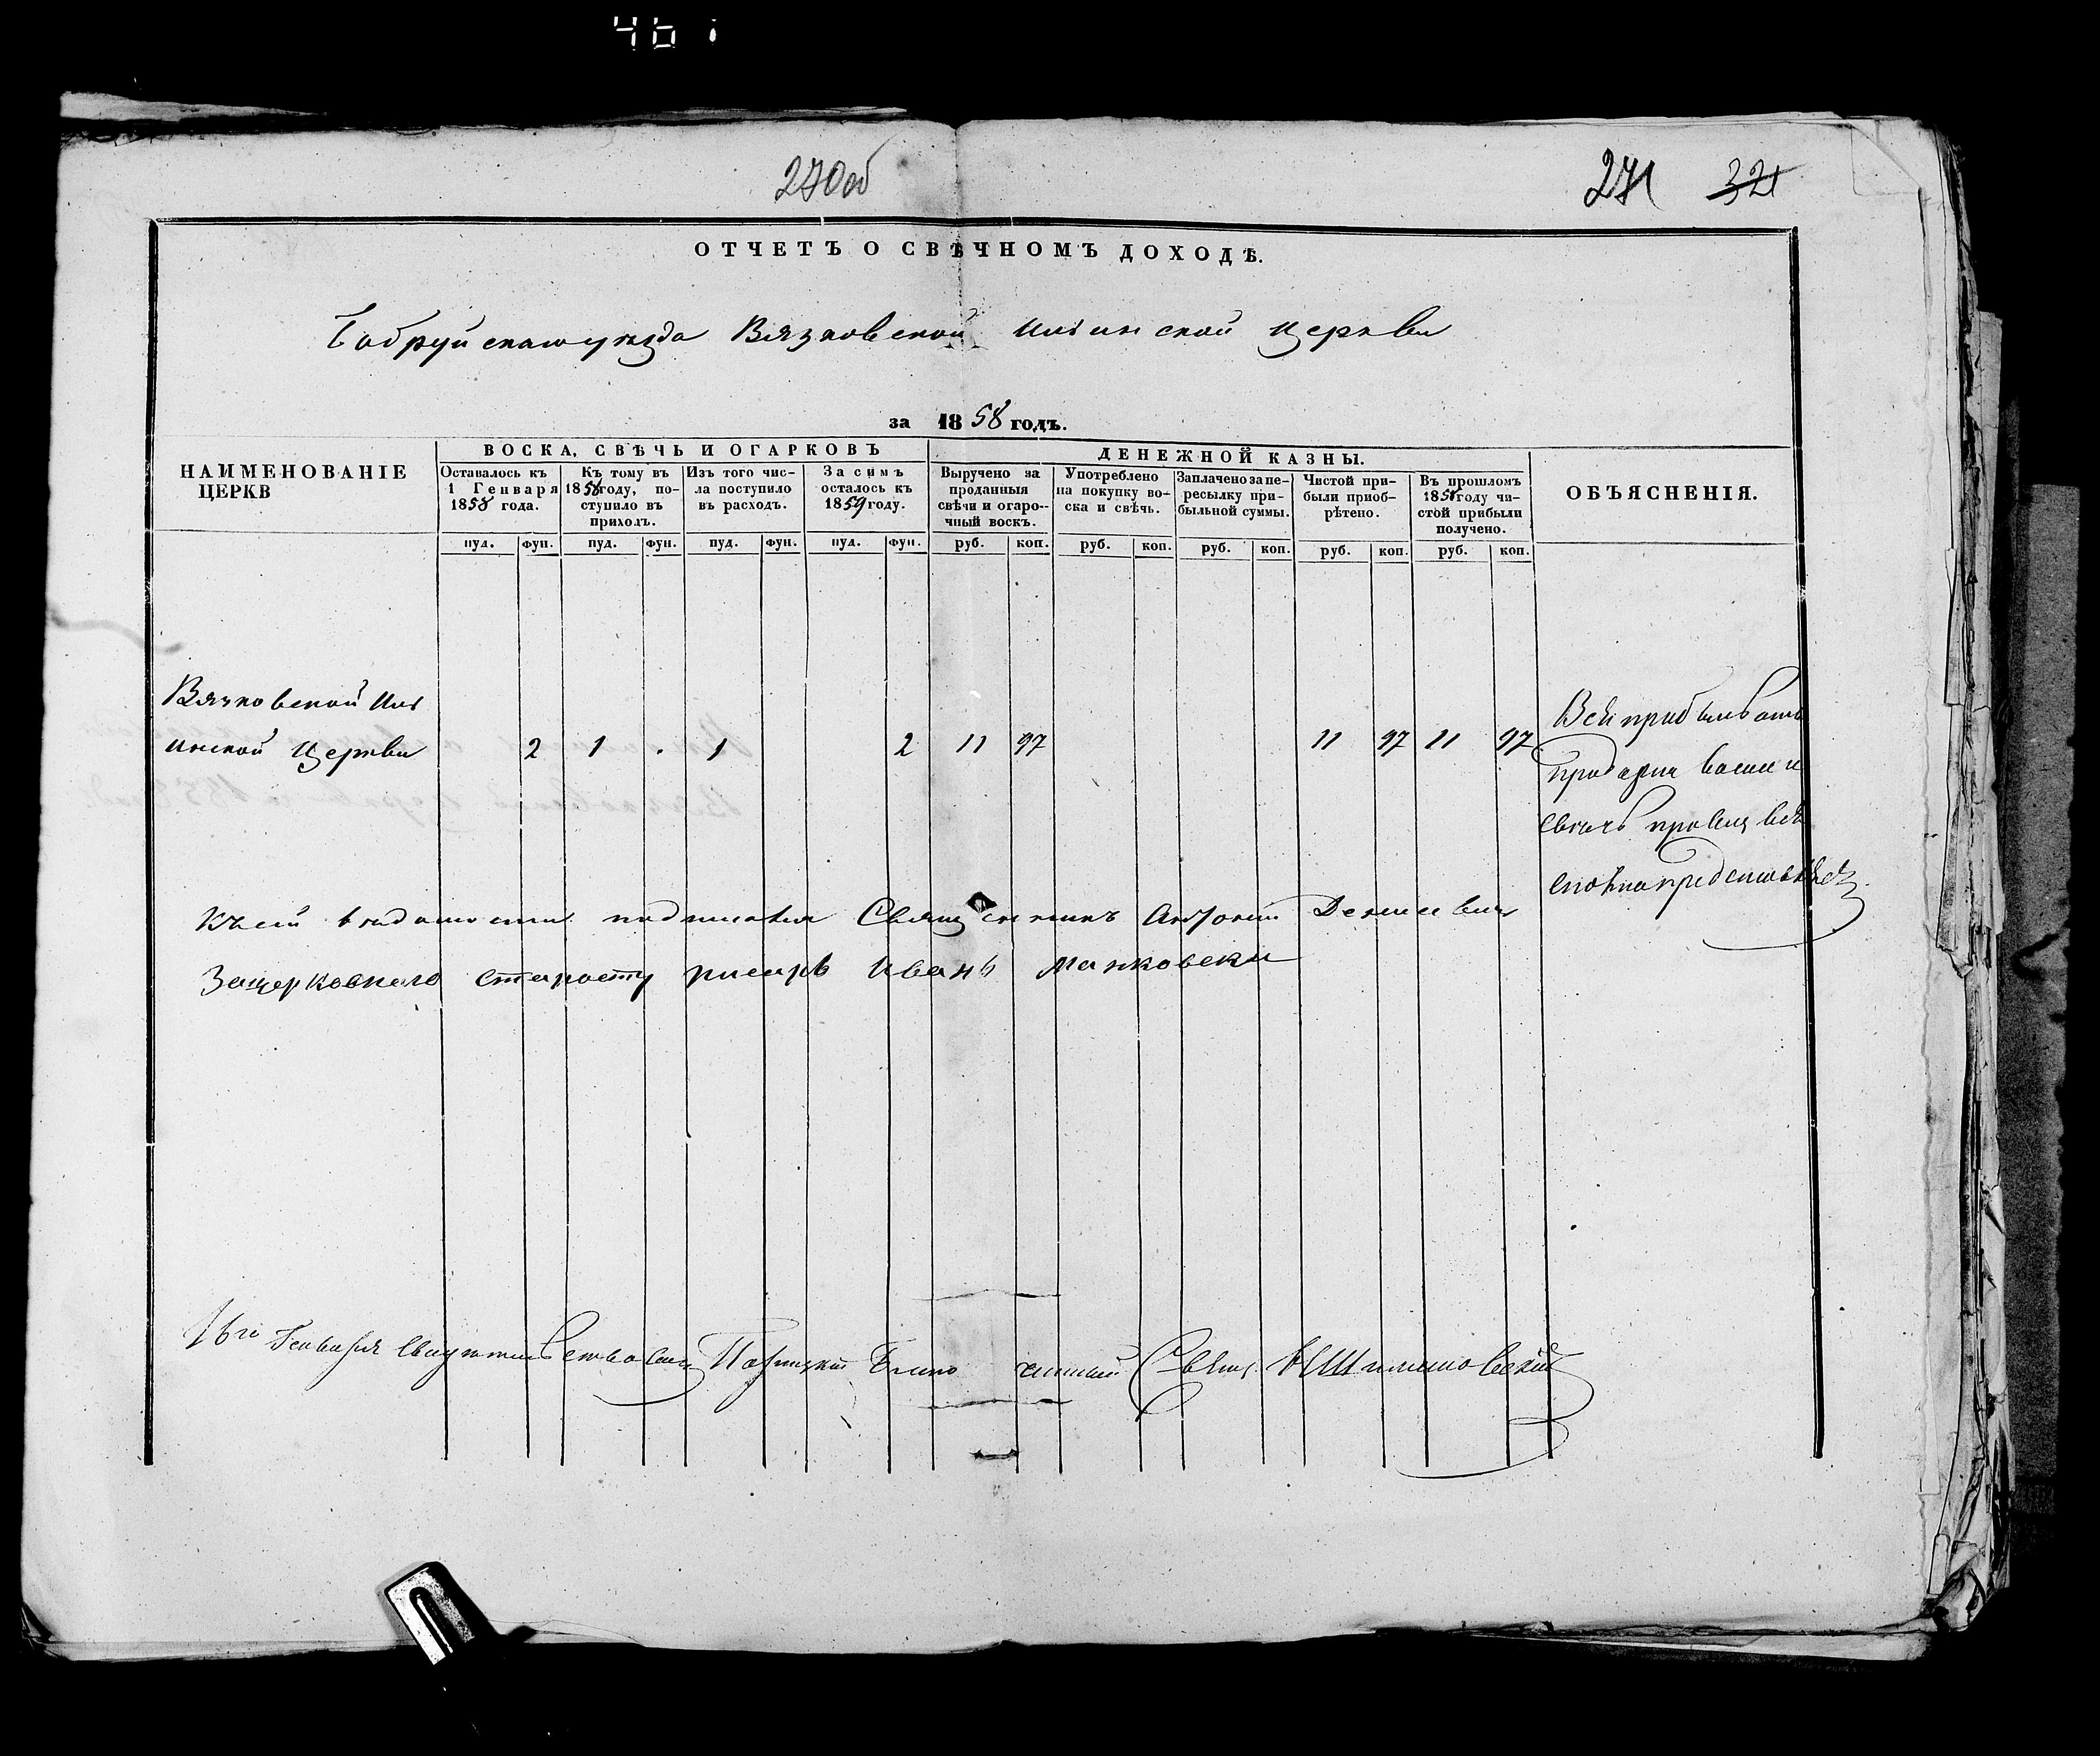 461
270об
271 321
ОТЧЕТЪ О СВѢЧНОМЪ ДОХОДѢ.
Бобруйскаго уѣзда Вязковской Ильинской Церкви
за 1858 годъ.
НАИМЕНОВАНІЕ ЦЕРКВ
ВОСКА, СВѢЧЬ И ОГАРКОВЪ
ДЕНЕЖНОЙ КАЗНЫ.
ОБЪЯСНЕНІЯ.
Оставалось къ 1 Генваря 1858 года.
Къ тому въ 1858 году, поступило въ приходъ.
Изъ того числа поступило въ расходъ.
За симъ осталось къ 1859 году.
Выручено за проданныя свѣчи и огарочный воскъ.
Употреблено на покупку воска и свѣчь.
Заплачено за пересылку прибыльной суммы.
Чистой прибыли приобрѣтено.
Въ прошломъ 185 году чистой прибыли получено.
пуд. фун. пуд. фун. пуд. фун. пуд. фун. руб. коп. руб. коп. руб. коп. руб. коп. руб. коп.
Вязковской Иль
инской Церкви 2 1 . 1 2 11 97 11 97 11 97
Вся прибыль отъ
продажи воска и
свѣчь
Къ сей вѣдомости подписался Священникъ Антоній
За церковнаго старосту писарь Иванъ Манковски
16го Генваря свидѣтельствовалъ Благочинный Свящ.